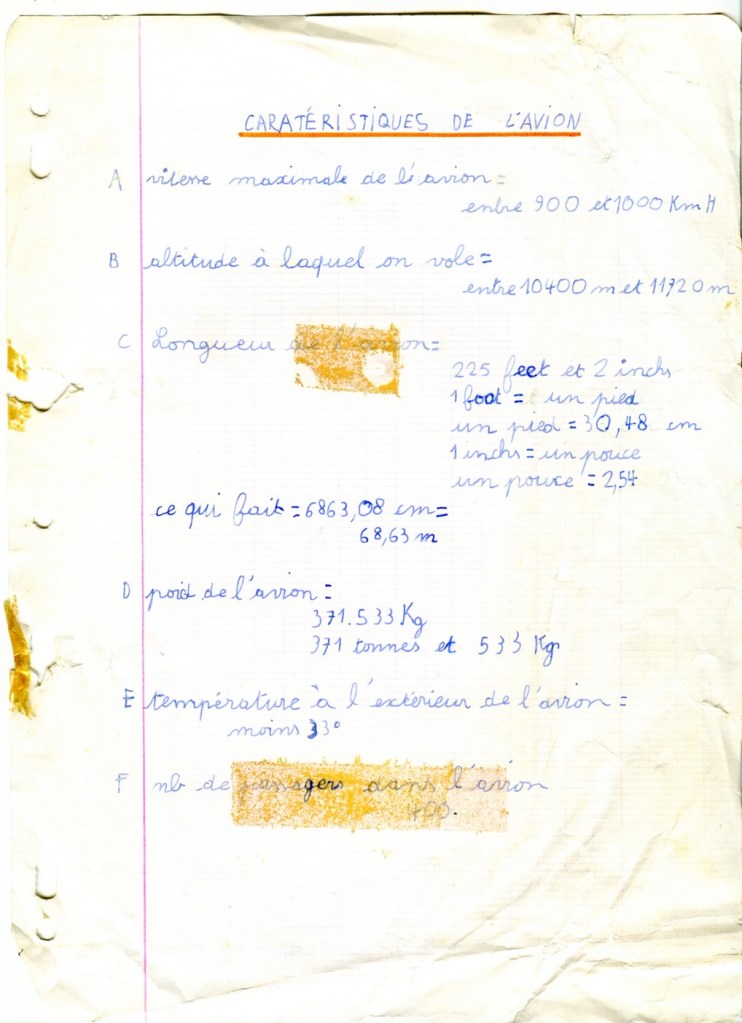 CARATÉRISTIQUES DE L'AVION
A vitesse maximale de l'avion =
entre 900 et 1000 KmH
B altitude à laquel on vole =
entre 10400 m et 11720 m
C Longueur de l'avion =
225 feet et 2 inchs
1 foot = un pied
un pied = 30,48 cm
1 inchs = un pouce
un pouce = 2,54
ce qui fait = 6863,08 cm =
68,63 m
D poid de l'avion =
371.533 Kg
371 tonnes et 533 Kg
E température à l'extérieur de l'avion =
moins 33°
F nb de passagers dans l'avion
400.